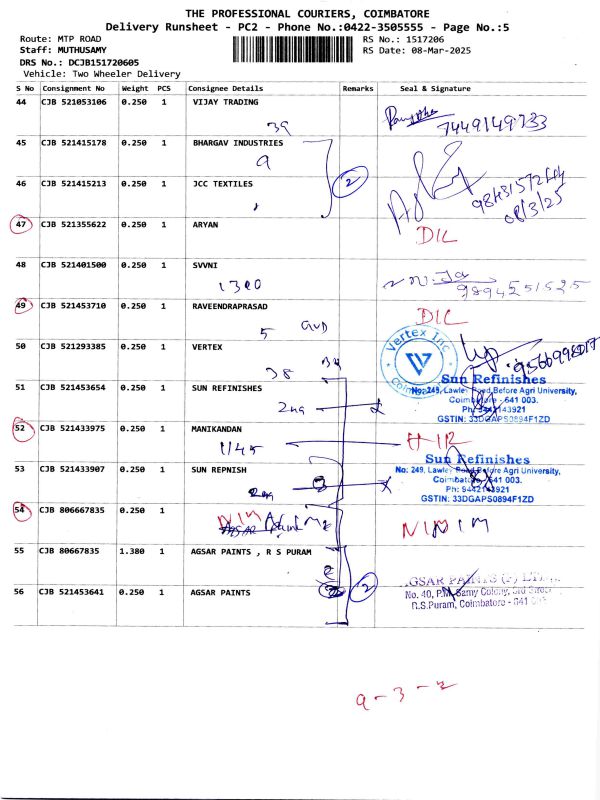 THE PROFESSIONAL COURIERS, COIMBATORE
Delivery Runsheet - PC2 - Phone No.:0422-3505555 - Page No.:5
Route: MTP ROAD
RS No.: 1517206
Staff: MUTHUSAMY
RS Date: 08-Mar-2025
DRS No.: DCJB151720605
Vehicle: Two Wheeler Delivery
S No Consignment No Weight PCS Consignee Details Remarks Seal & Signature
44 CJB 521053106 0.250 1 VIJAY TRADING
39
7449149733
45 CJB 521415178 0.250 1 BHARGAV INDUSTRIES
9
2
46 CJB 521415213 0.250 1 JCC TEXTILES
08/3/25
47 CJB 521355622 0.250 1 ARYAN
DIL
48 CJB 521401500 0.250 1 SVVNI
1300
9894251525
49 CJB 521453710 0.250 1 RAVEENDRAPRASAD
DIL
5
50 CJB 521293385 0.250 1 VERTEX
Vertex Inc
Coimbatore
38
51 CJB 521453654 0.250 1 SUN REFINISHES
Sun Refinishes
No: 249, Lawley Road,Before Agri University,
Coimbatore - 641 003.
Ph: 9442143921
GSTIN: 33DGAPS0894F1ZD
52 CJB 521433975 0.250 1 MANIKANDAN
1145
53 CJB 521433907 0.250 1 SUN REPNISH
Sun Refinishes
No: 249, Lawley Road,Before Agri University,
Coimbatore, 641 003.
Ph: 9442143921
GSTIN: 33DGAPS0894F1ZD
54 CJB 806667835 0.250 1
NIM
NIMIM
55 CJB 80667835 1.380 1 AGSAR PAINTS , R S PURAM
2
56 CJB 521453641 0.250 1 AGSAR PAINTS
2
AGSAR PAINTS (P) LTD.
No. 40, P.M. Samy Colony, 3rd Street
R.S.Puram, Coimbatore - 641
9-3-2